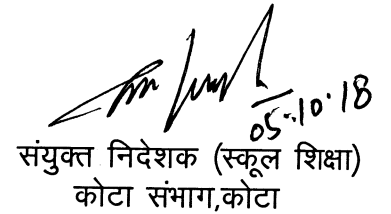 05-10-18
संयुक्त निदेशक (स्कूल शिक्षा)
कोटा संभाग,कोटा